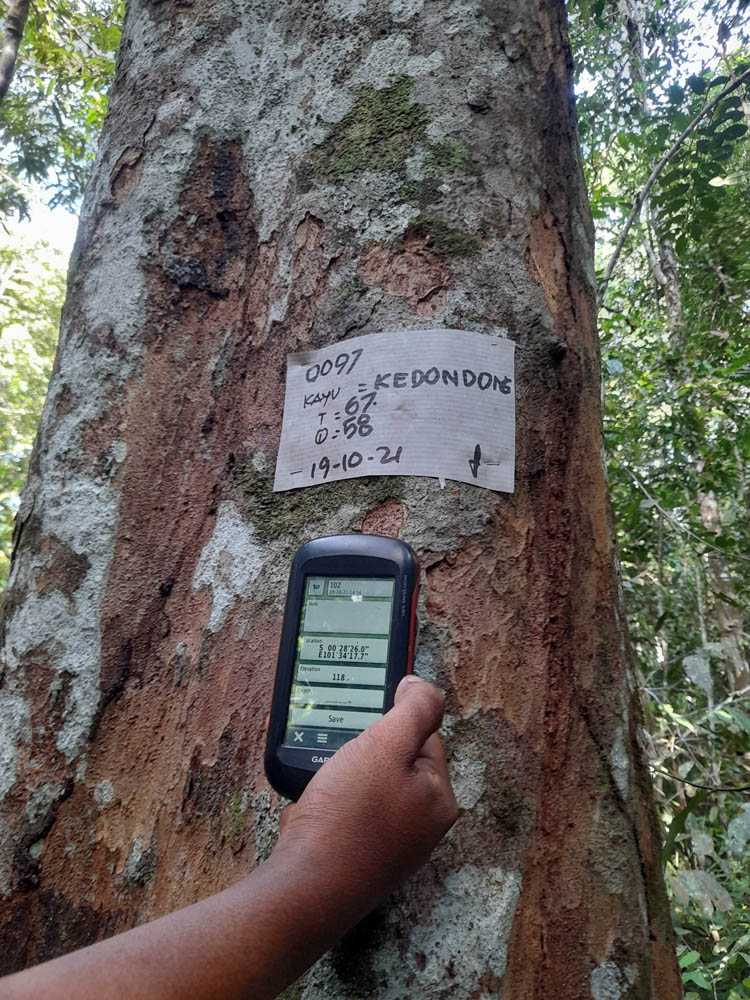 0097
KAYU = KEDONDONG
T = 67
Ⓓ = 58
- 19-10-21
102
19-10-21 14:54
Note
Location
S 00°28'26.0"
E101°34'17.7"
Elevation
118
Depth
Save